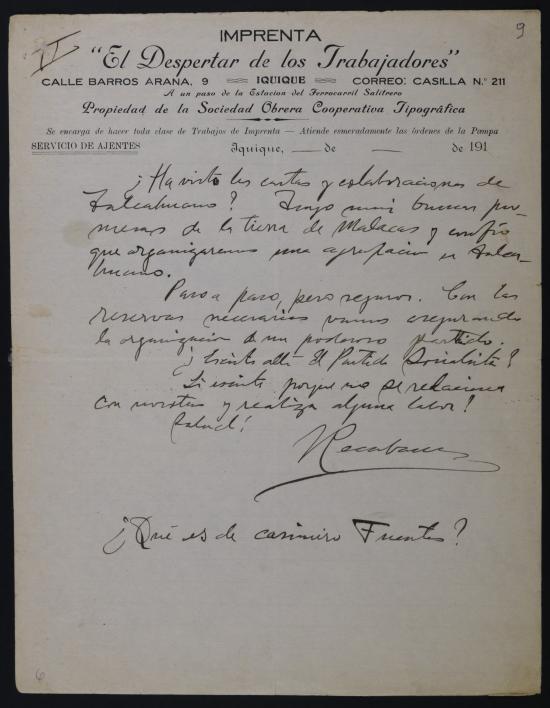 II
9
IMPRENTA
"El Despertar de los Trabajadores"
CALLE BARROS ARANA, 9 IQUIQUE CORREO: CASILLA N.º 211
A un paso de la Estacion del Ferrocarril Salitrero
Propiedad de la Sociedad Obrera Cooperativa Tipográfica
Se encarga de hacer toda clase de Trabajos de Imprenta — Atiende esmeradamente las órdenes de la Pampa
SERVICIO DE AJENTES
Iquique, de de 191
¿Ha visto las cartas y colaboraciones de
Talcahuano? Tengo mui buenas pro-
mesas de la tierra de Malacas y confío
que organizaremos una agrupacion en Talca-
huano.
Paso a paso, pero seguros. Con las
reservas necesarias vamos asegurando
la organizacion de un poderoso partido.
¿Existe allá el Partido Socialista?
Si existe porque no se relaciona
con nosotros y realiza alguna labor?
Salud!
Recabarren
¿Qué es de Casimiro Fuentes?
6